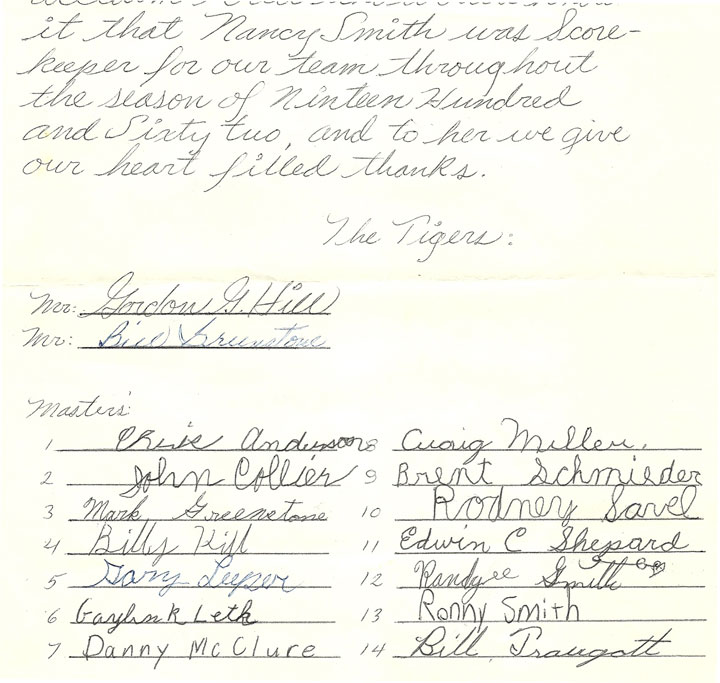 it that Nancy Smith was Score-
keeper for our team throughout
the season of Ninteen Hundred
and Sixty two, and to her we give
our heart filled thanks.
The Tigers:
Mr: Gordon G. Hill
Mr: Bill
Masters:
1 Chris Anderson
2 John Collier
3 Mark Greenstone
4 Billy Kill
5 Gary Leeper
6 Leth
7 Danny McClure
8 Craig Miller.
9 Brent Schmieder
10 Rodney Savel
11 Edwin C Shepard
12 Smith
13 Ronny Smith
14 Bill Traugott